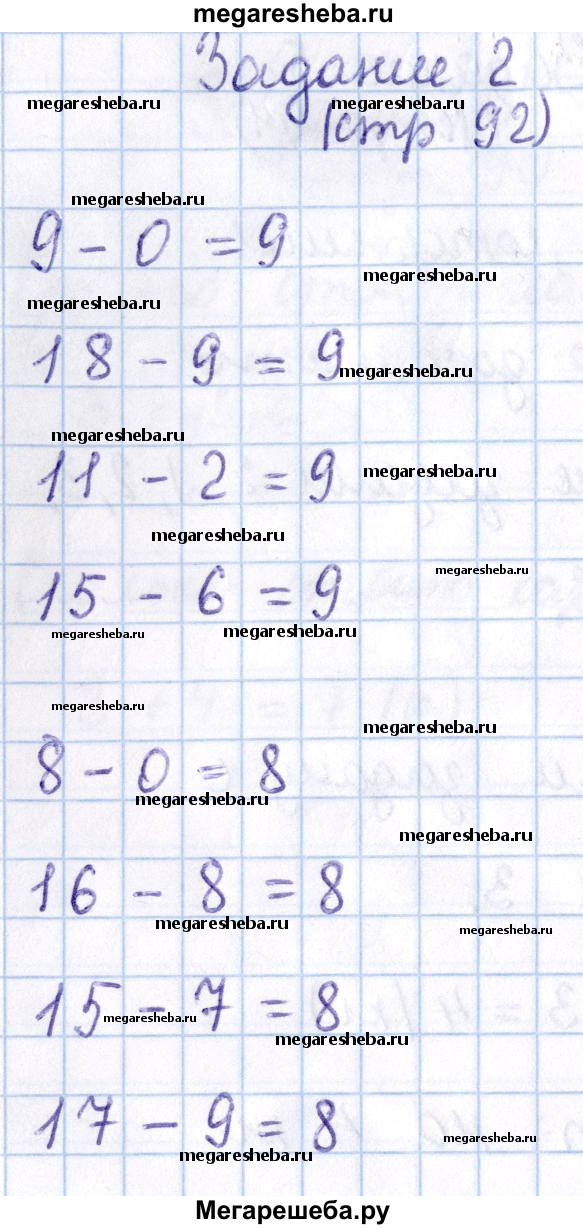 megaresheba.ru
Задание 2
megaresheba.ru megaresheba.ru
(стр 92)
megaresheba.ru
9 - 0 = 9
megaresheba.ru
megaresheba.ru
18 - 9 = 9
megaresheba.ru
megaresheba.ru
11 - 2 = 9
megaresheba.ru
megaresheba.ru
megaresheba.ru
15 - 6 = 9
megaresheba.ru megaresheba.ru
megaresheba.ru
megaresheba.ru
8 - 0 = 8
megaresheba.ru
megaresheba.ru
16 - 8 = 8
megaresheba.ru
megaresheba.ru
15 - 7 = 8
megaresheba.ru
megaresheba.ru
17 - 9 = 8
megaresheba.ru
megaresheba.ru
Мегарешеба.ру